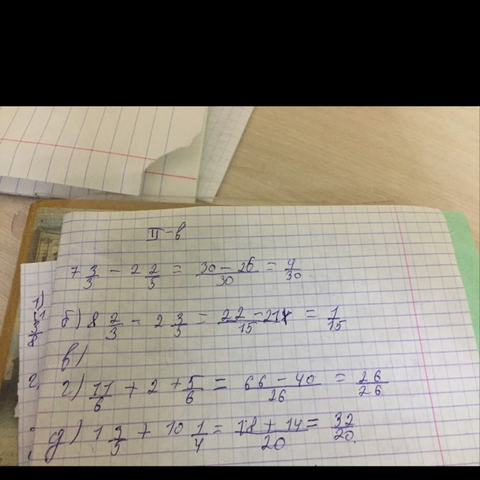 II-в
7 3/3 - 2 2/5 = 30-26/30 = 4/30
б) 8 2/3 - 2 3/5 = 22/15 - 21 = 1/15
в)
г) 11/6 + 2 + 5/6 = 66-40/26 = 26/26
д) 1 2/5 + 10 1/4 = 18+14/20 = 32/20